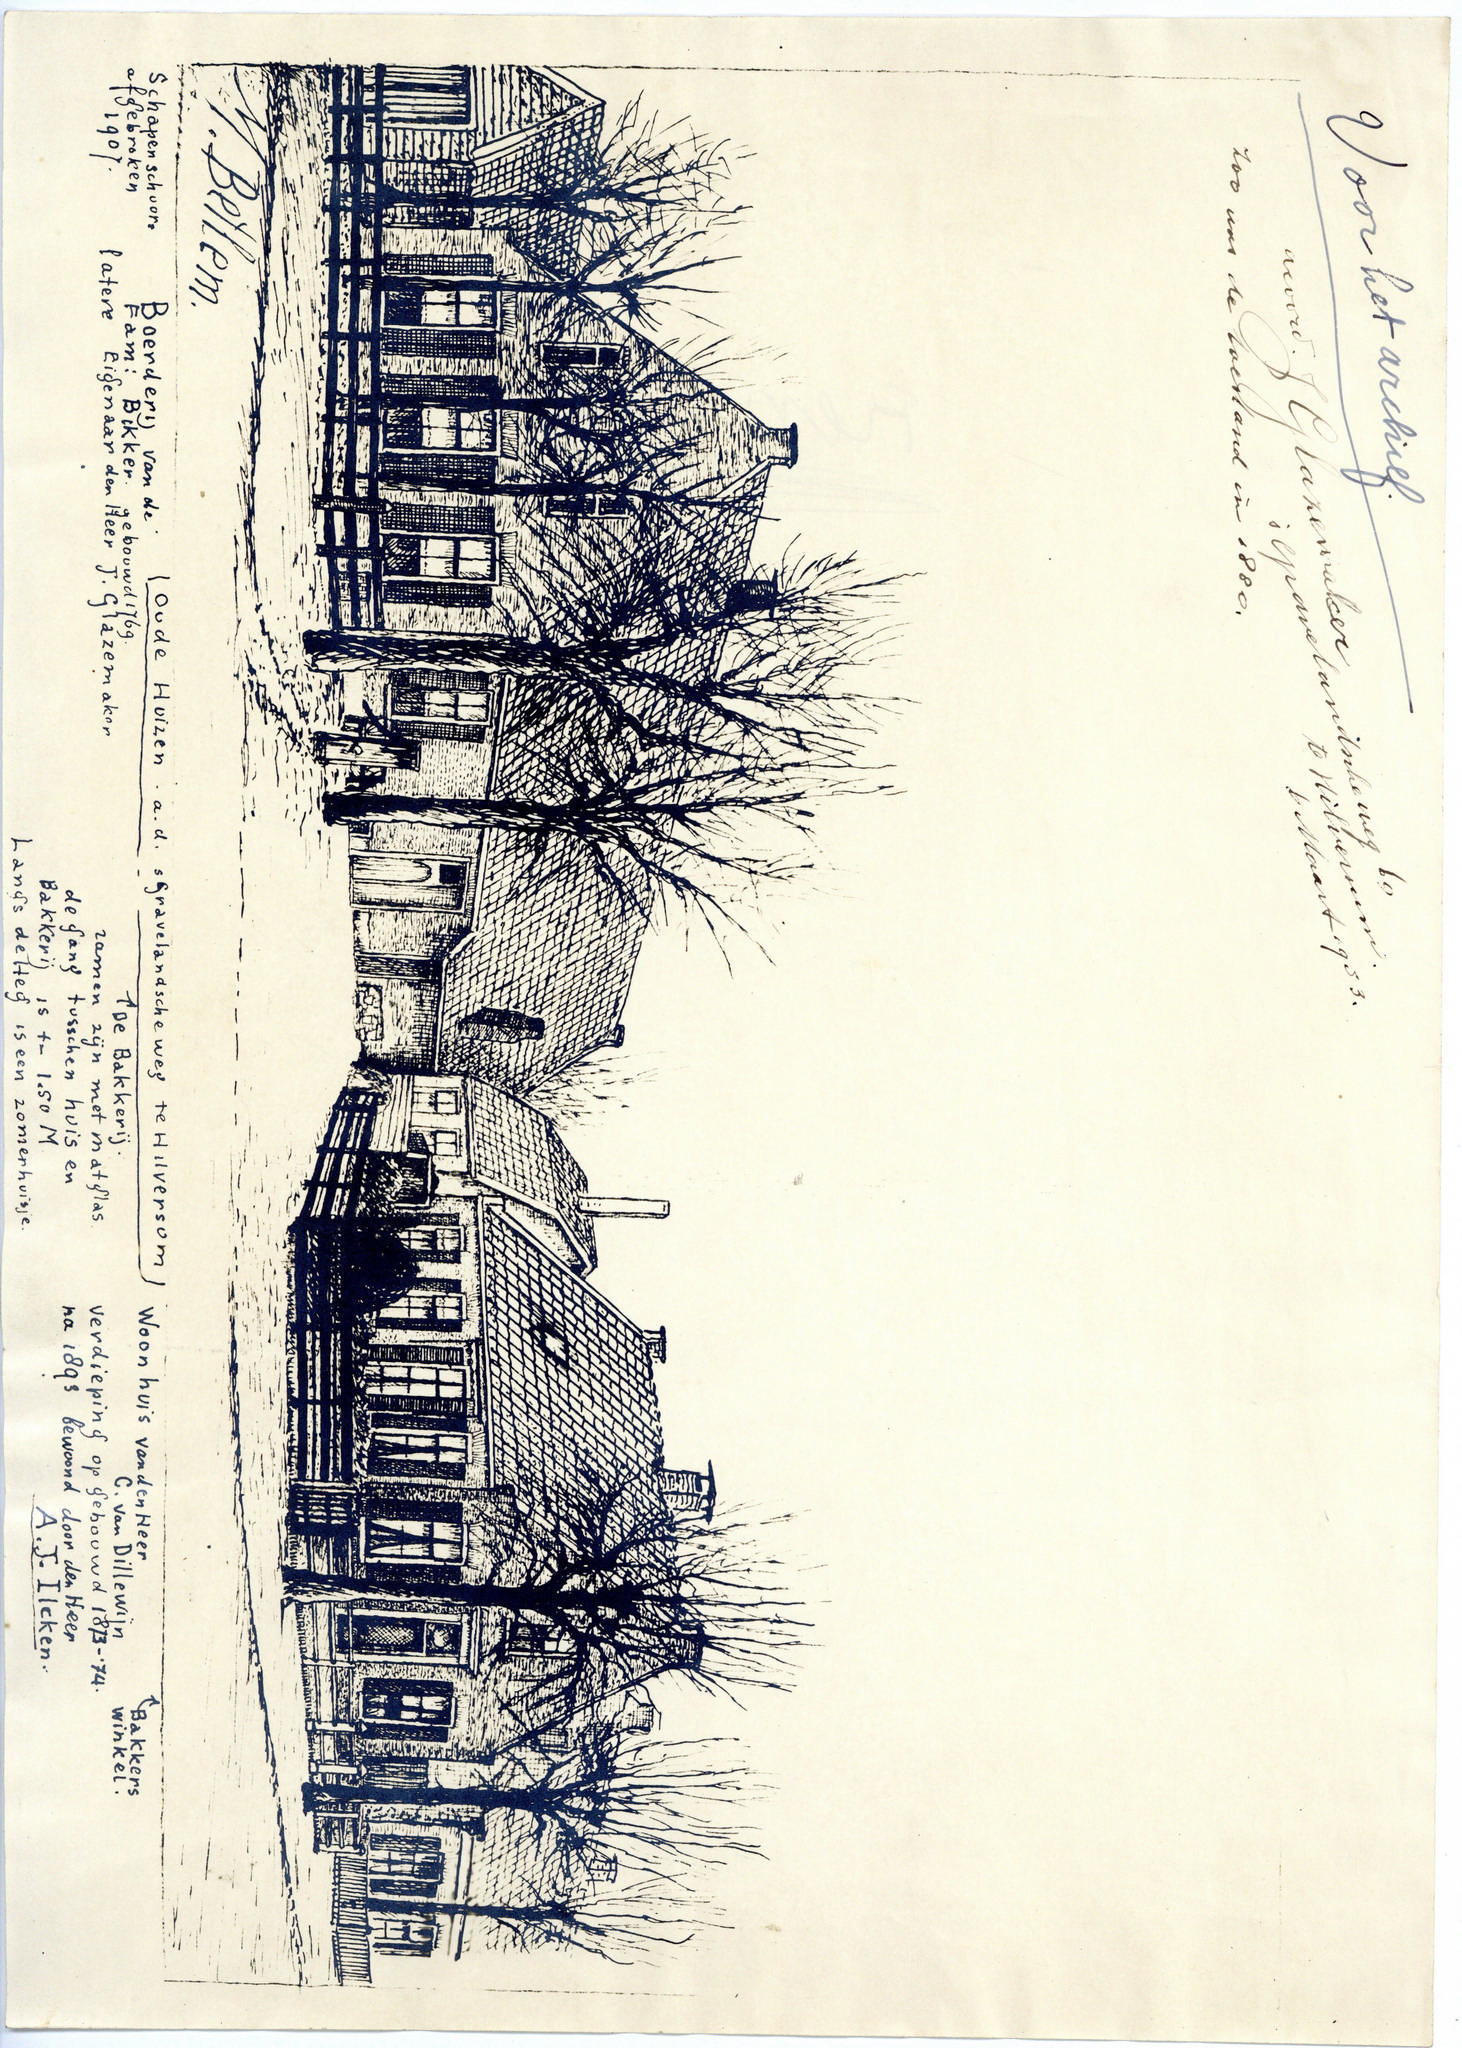 Voor het archief.
J Glazemaker
's Gravelandscheweg 60
te Hilversum.
6 Maart 1953.
zoo was de toestand in 1880.
Beijlem.
Schapenschuur.
afgebroken
1907.
Boerderij van de
Fam: Bikker. gebouwd 1769.
latere Eigenaar den Heer J. Glazemaker
(Oude Huizen. a.d. sGravelandscheweg te Hilversum)
↑ De Bakkerij.
ramen zijn met matglas
de gang tusschen huis en
Bakkerij is +- 1.50 M.
Langs de Heg is een zomerhuisje.
Woonhuis van den Heer
C. van Dillewijn
verdieping op gebouwd 1873-'74.
na 1893 bewoond door den Heer
A.J. Ilcken.
↑ Bakkers
winkel.